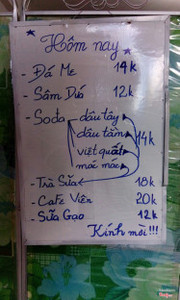 Hôm nay
- Đá Me 14k
- Sâm Dứa 12k
- Soda dâu tây
dâu tằm
việt quất 14k
mác mác
- Trà Sữa 18k
- Cafe Viên 20k
- Sữa Gạo 12k
Kính mời!!!